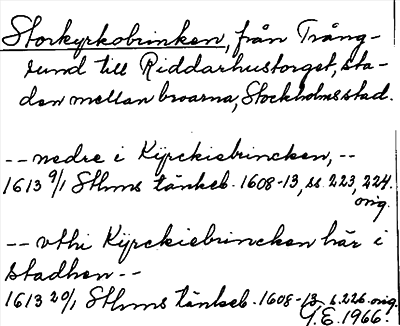 Storkyrkobrinken, från Trång-
sund till Riddarhustorget, sta-
den mellan broarna, Stockholms stad.
-- nedre i Kÿrckiebrincken, --
1613 9/1 Sthms tänkeb. 1608-13, ss. 223, 224.
orig.
-- vthi Kÿrckiebrincken här i
stadhen --
1613 20/1 Sthms tänkeb. 1608-13, s. 226. orig.
Y.E. 1966.